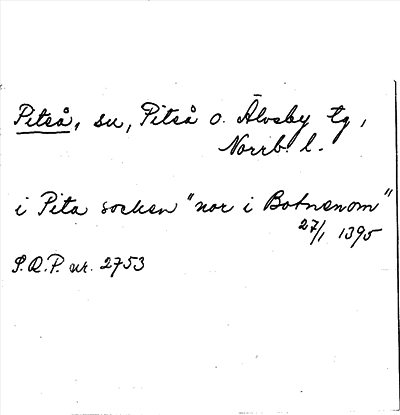 Piteå, sn, Piteå o. Älvsby tg,
Norrb. l.
i Pita socken "nor i Botnenom"
27/1 1395
S.R.P. nr. 2753